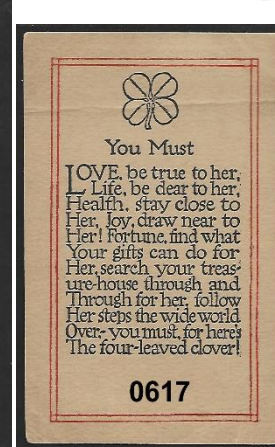 You Must
LOVE, be true to her;
Life, be dear to her;
Health, stay close to
Her, Joy, draw near to
Her! Fortune, find what
Your gifts can do for
Her, search your treas-
ure-house through and
Through for her, follow
Her steps the wide world
Over,- you must, for here's
The four-leaved clover!
0617